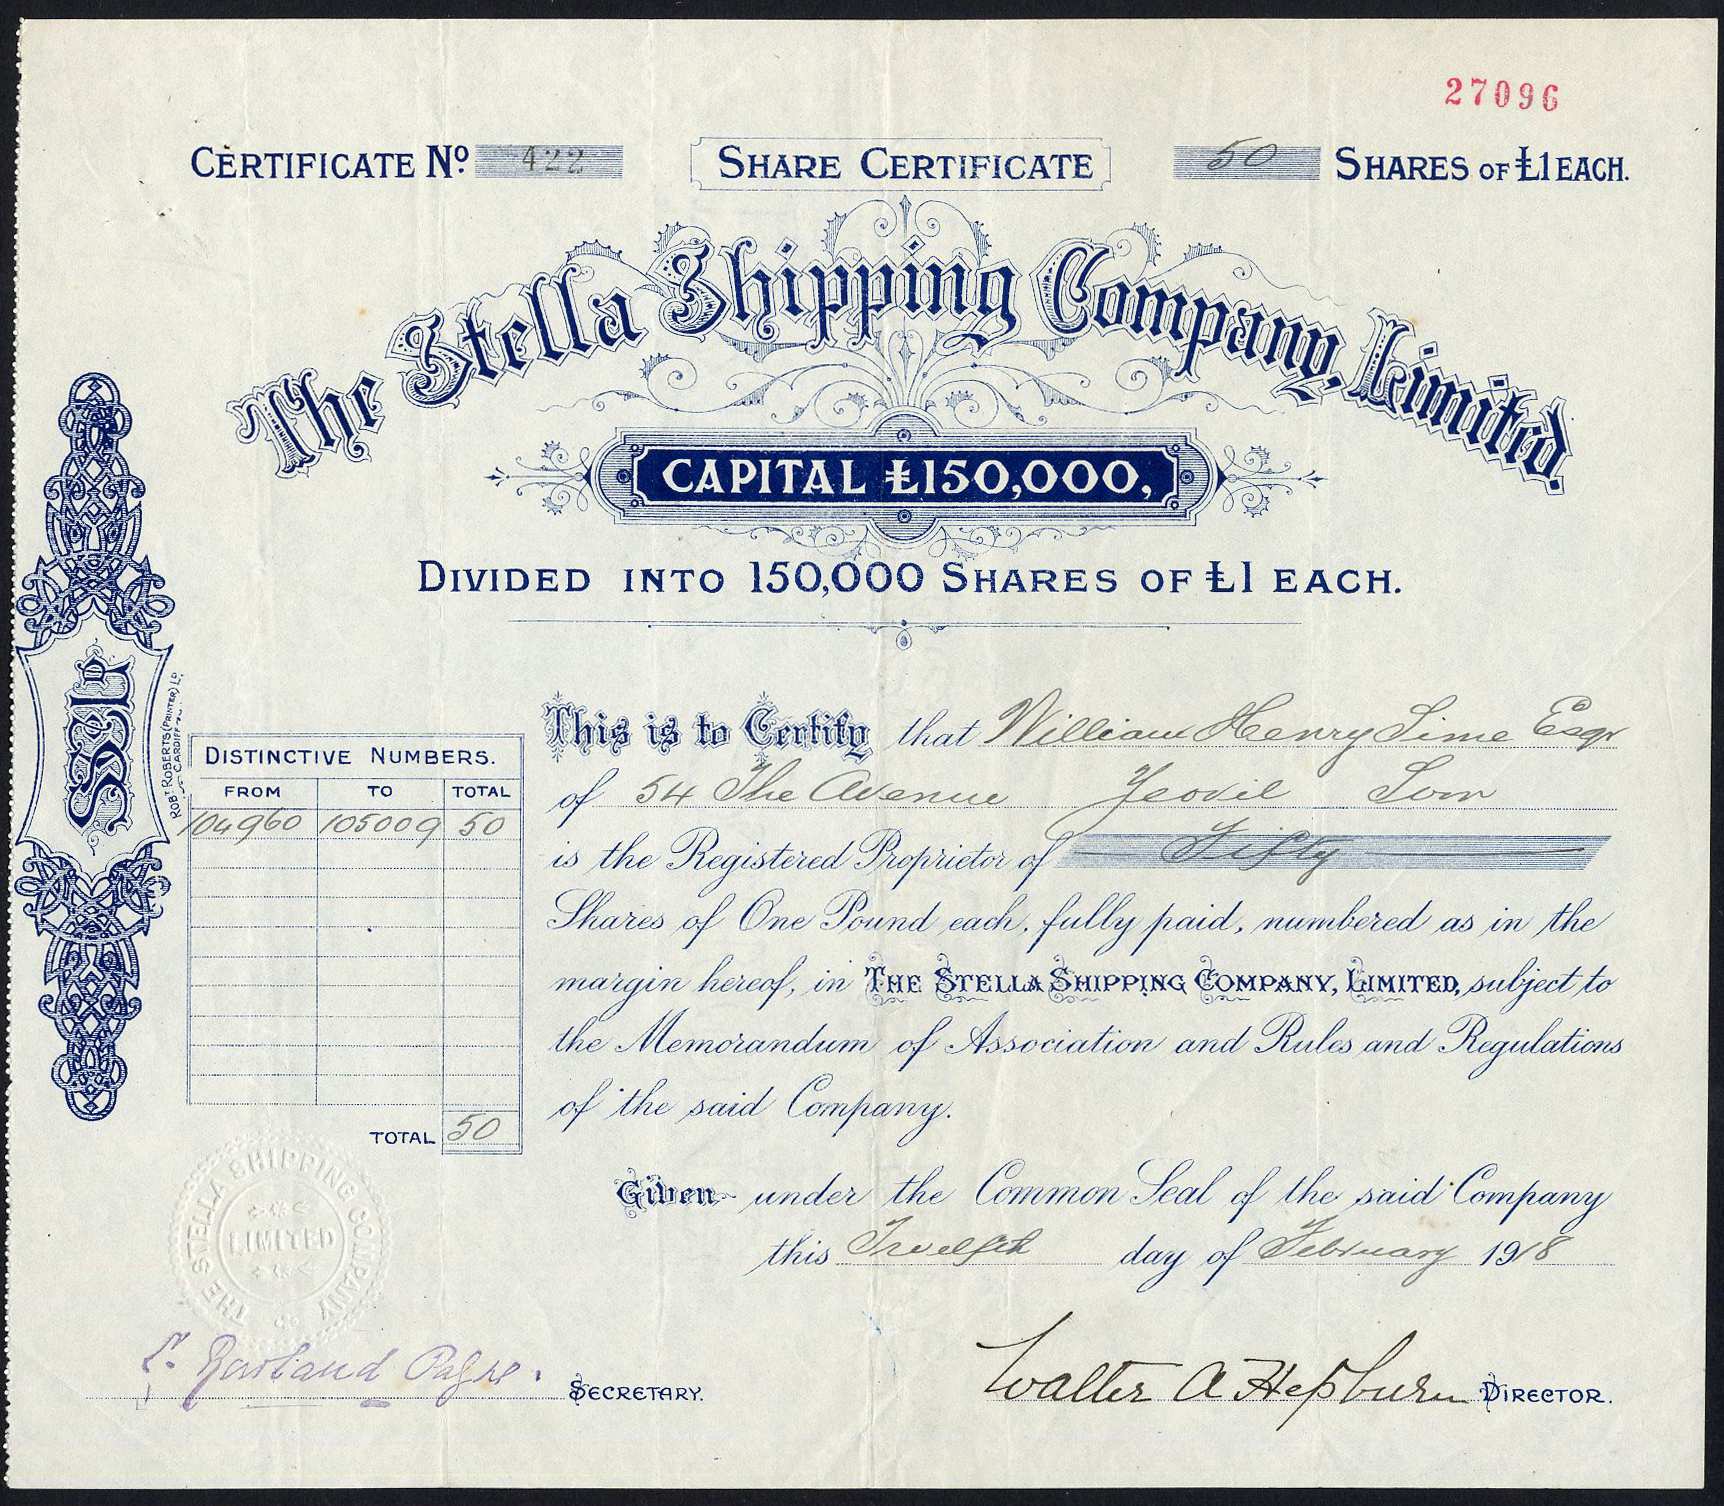 27096
CERTIFICATE No. 422
SHARE CERTIFICATE
50 SHARES OF £1 EACH.
The Stella Shipping Company, Limited.
CAPITAL £150,000,
DIVIDED INTO 150,000 SHARES OF £1 EACH.
ROBT ROBERTS (PRINTER) LD.
CARDIFF
DISTINCTIVE NUMBERS.
FROM TO TOTAL
104960 105009 50
TOTAL 50
This is to Certify that William Henry Sime Esqr
of 54 The Avenue Yeovil Som
is the Registered Proprietor of Fifty
Shares of One Pound each, fully paid, numbered as in the
margin hereof, in THE STELLA SHIPPING COMPANY, LIMITED, subject to
the Memorandum of Association and Rules and Regulations
of the said Company.
Given under the Common Seal of the said Company
this Twelfth day of February 1918
THE STELLA SHIPPING COMPANY
LIMITED
SECRETARY.
Walter A Hepburn DIRECTOR.